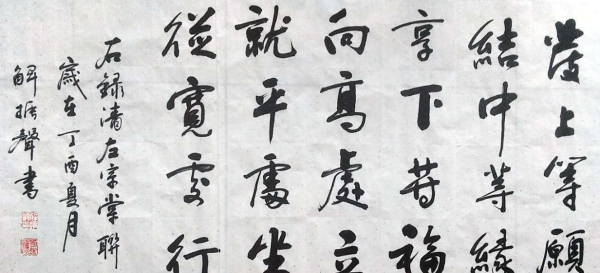 發上等願
結中等緣
享下等福
向高處立
就平處坐
從寬處行
右録清左宗棠聯
歲在丁酉夏月
解振聲書